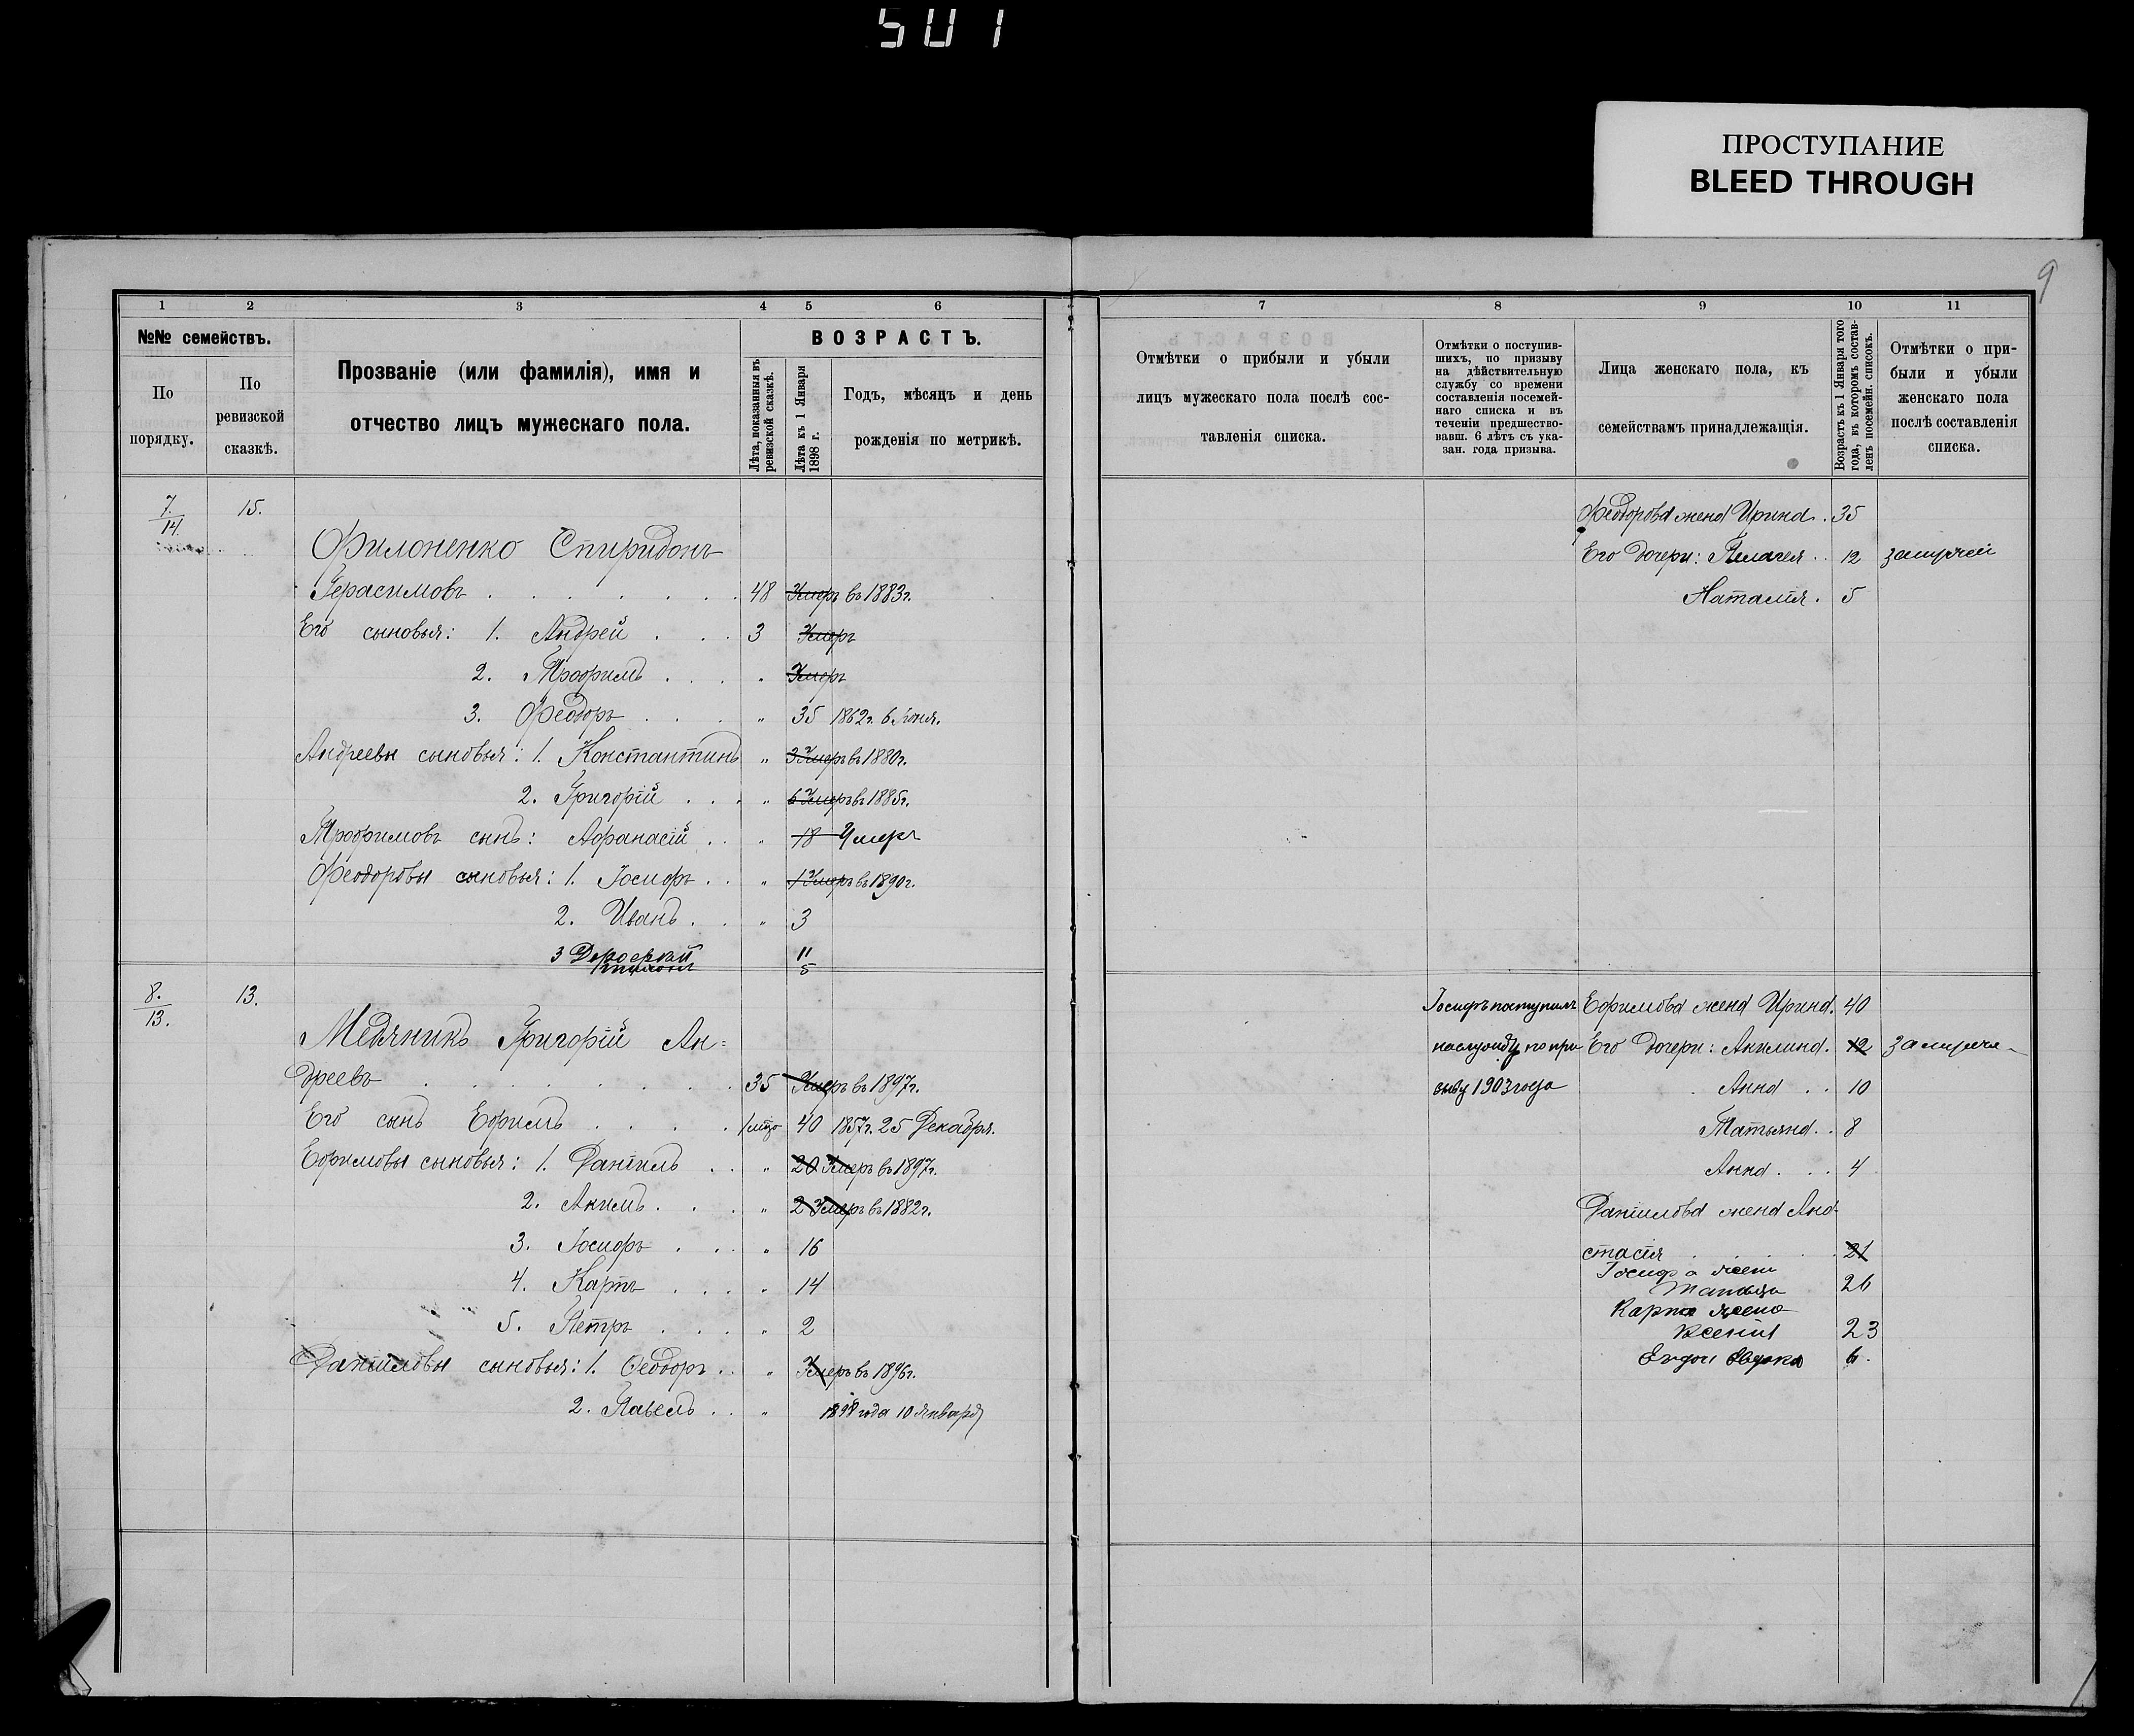 501
ПРОСТУПАНИЕ
BLEED THROUGH
9
1 2 3 4 5 6
№№ семействъ.
По порядку.
По ревизской сказкѣ.
Прозваніе (или фамилія), имя и
отчество лицъ мужескаго пола.
ВОЗРАСТЪ.
Лѣта, показанныя въ ревизской сказкѣ.
Лѣта къ 1 Января 1898 г.
Годъ, мѣсяцъ и день
рожденія по метрикѣ.
7. 14. 15.
Филоненко Спиридонъ
Герасимовъ . . . . . . . 48 Умеръ въ 1883г.
Его сыновья: 1. Андрей . . . 3 Умеръ
2. Трофимъ . . . . „ Умеръ
3. Феодоръ . . . „ 35 1862г. 6 Іюня.
Андреевы сыновья: 1. Константинъ „ 3 Умеръ въ 1880г.
2. Григорій . . . „ 6 Умеръ въ 1885г.
Трофимовъ сынъ: Афанасій . . „ 18 Умеръ
Феодоровы сыновья: 1. Іосифъ . . „ 1 Умеръ въ 1890г.
2. Иванъ . . „ 3
3 11
5
8. 13. 13.
Медяникъ Григорій Ан=
дреевъ . . . . . . . . 35 Умеръ въ 1897г.
Его сынъ Ефимъ . . . . 40 1857г. 25 Декабря.
Ефимовы сыновья: 1. Даніилъ . . „ 20 Умеръ въ 1897г.
2. Акимъ . . . „ 2 Умеръ въ 1882г.
3. Іосифъ . . . „ 16
4. Карпъ . . . . „ 14
5. Петръ . . . . „ 2
Даніиловы сыновья: 1. Ѳеодоръ . . „ Умеръ въ 1896г.
2. Павелъ . . „ 1898 года 10 Января
7 8 9 10 11
Отмѣтки о прибыли и убыли
лицъ мужескаго пола послѣ сос-
тавленія списка.
Отмѣтки о поступив-
шихъ, по призыву
на дѣйствительную
службу со времени
составленія посемей-
наго списка и въ
теченіи предшество-
вавш. 6 лѣтъ съ ука-
зан. года призыва.
Лица женскаго пола, къ
семействамъ принадлежащія.
Возрастъ къ 1 Января того
года, въ которомъ состав-
ленъ посемейн. списокъ.
Отмѣтки о при-
были и убыли
женскаго пола
послѣ составленія
списка.
Феодорова жена Ирина . 35
Его дочери: Пелагея . . 12 замужей
Наталія . 5
Іосифъ поступилъ Ефимова жена Ирина. 40
на службу по при Его дочери: Акилина. 12 замужем
зыву 1903 года Анна . . 10
Татьяна . . 8
Анна . . . 4
Даніилова жена Ана-
стасія . . . . 21
Іосифа жена
Татьяна 26
Карпа жена
Ксенія 23
6.